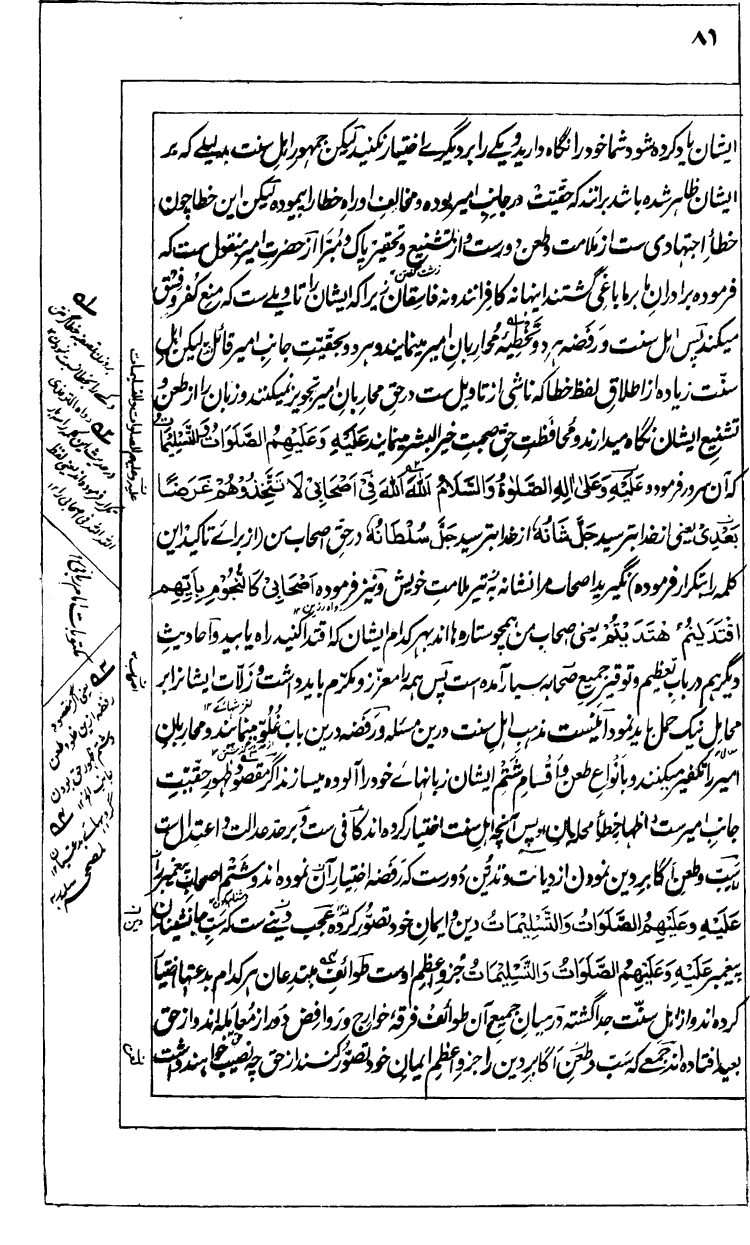 ۸۶
ایشان یاد کرده شود شما خود را نگاه دارید و یکے را بر دیگرے اختیار نکنید لیکن جمہور اہل سنت بدلیلے کہ بر
ایشان ظاہر شدہ باشد برانند کہ حقیّت در جانب امیر بوده و مخالف او راہ خطا را پیمودہ لیکن این خطا چون
خطاءِ اجتہادی ست از ملامت و طعن دور ست و از تشنیع و تحقیر پاک و مبرا از حضرت امیر منقول ست کہ
فرمودہ برادران ما بر ما باغی گشتند اینہا نہ کافرانند و نہ فاسقان زیرا کہ ایشان را تاویلے ست کہ منع کفر و فسق
میکند پس اہل سنت و رفضہ ہر دو تخطیہ محاربان امیر مینمایند و ہر دو بحقیّت جانب امیر قائل لیکن اہل
سنّت زیادہ از اطلاق لفظ خطا کہ ناشی از تاویل ست در حق محاربان امیر تجویز نمیکنند و زبان را از طعن و
تشنیع ایشان نگاہ میدارند و محافظت حق صحبت خیر البشر مینمایند عَلَیْهِ وَعَلَیْهِمُ الصَّلَوَاتُ وَالتَّسْلِیْمَاتُ
کہ آن سرور فرمودہ عَلَیْهِ وَعَلٰی اٰلِهِ الصَّلٰوةُ وَالسَّلَامُ اَللهَ اَللهَ فِیْ اَصْحَابِیْ لَا تَتَّخِذُوْهُمْ غَرَضًا
بَعْدِیْ یعنی از خدا بترسید جَلَّ شَانُهٗ از خدا بترسید جَلَّ سُلْطَانُهٗ در حق اصحاب من (از برائے تاکید این
کلمہ را بتکرار فرمودہ) نگیرید اصحاب مرا نشانہ تیر ملامت خویش و نیز فرمودہ اَصْحَابِیْ کَالنُّجُوْمِ بِاَیِّهِمُ
اقْتَدَیْتُمُ اهْتَدَیْتُمْ یعنی اصحاب من ہمچو ستارہ ہا اند بہر کدام ایشان کہ اقتدا کنید راہ یابید و احادیثِ
دیگر ہم در باب تعظیم و توقیر جمیع صحابہ بسیار آمدہ است پس ہمہ را معزز و مکرّم باید داشت و زلّات ایشانرا بر
محامل نیک حمل باید نمود اینست مذہب اہل سنت درین مسئلہ و رفضہ درین باب غُلُوّ مینمایند و محاربان
امیر را تکفیر میکنند و بانواع طعن و اقسام شتم ایشان زبانہاے خود را آلودہ میسازند اگر مقصود ظہور حقیّت
جانب امیر ست و اظہار خطاءِ محاربان او پس آنچہ اہل سنت اختیار کردہ اند کافی ست و بر حدِ عدالت و اعتدال است
سَبّ و طعن اکابر دین نمودن از دیانت و تدیّن دور ست کہ رفضہ اختیار آن نمودہ اند و شتم اصحاب پیغمبر را
عَلَیْهِ وَعَلَیْهِمُ الصَّلَوَاتُ وَالتَّسْلِیْمَاتُ دین و ایمان خود تصوّر کردہ عجب دینے ست کہ سَبّ جانشینان
پیغمبر عَلَیْهِ وَعَلَیْهِمُ الصَّلَوَاتُ وَالتَّسْلِیْمَاتُ جزو اعظم اوست طوائف مبتدعان ہر کدام بدعتہا اختیار
کردہ اند و از اہل سنّت جدا گشتہ در میان جمیع آن طوائف فرقۂ خوارج و روافض دور از معاملہ اند و از حق
بعید افتادہ اند جمعے کہ سَبّ و طعن اکابر دین را جزو اعظم ایمان خود تصوّر کنند از حق چہ نصیب خواہند داشت
مکتوبات امام ربانی